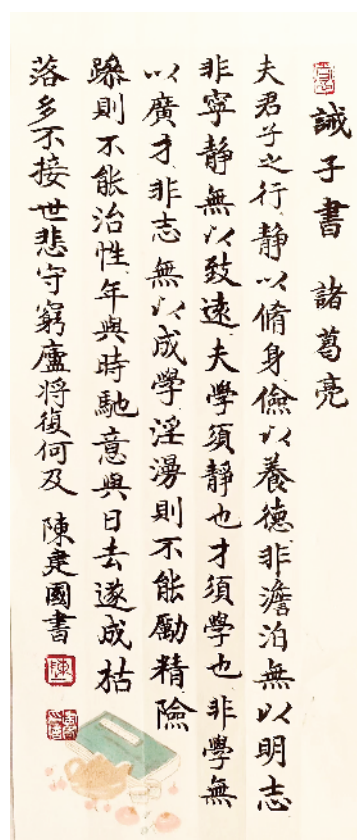 誡子書 諸葛亮
夫君子之行静以脩身儉以養德非澹泊無以明志
非寧静無以致遠夫學須静也才須學也非學無
以廣才非志無以成學淫漫則不能勵精險
躁則不能治性年與時馳意與日去遂成枯
落多不接世悲守窮廬将復何及 陳建國書
陳